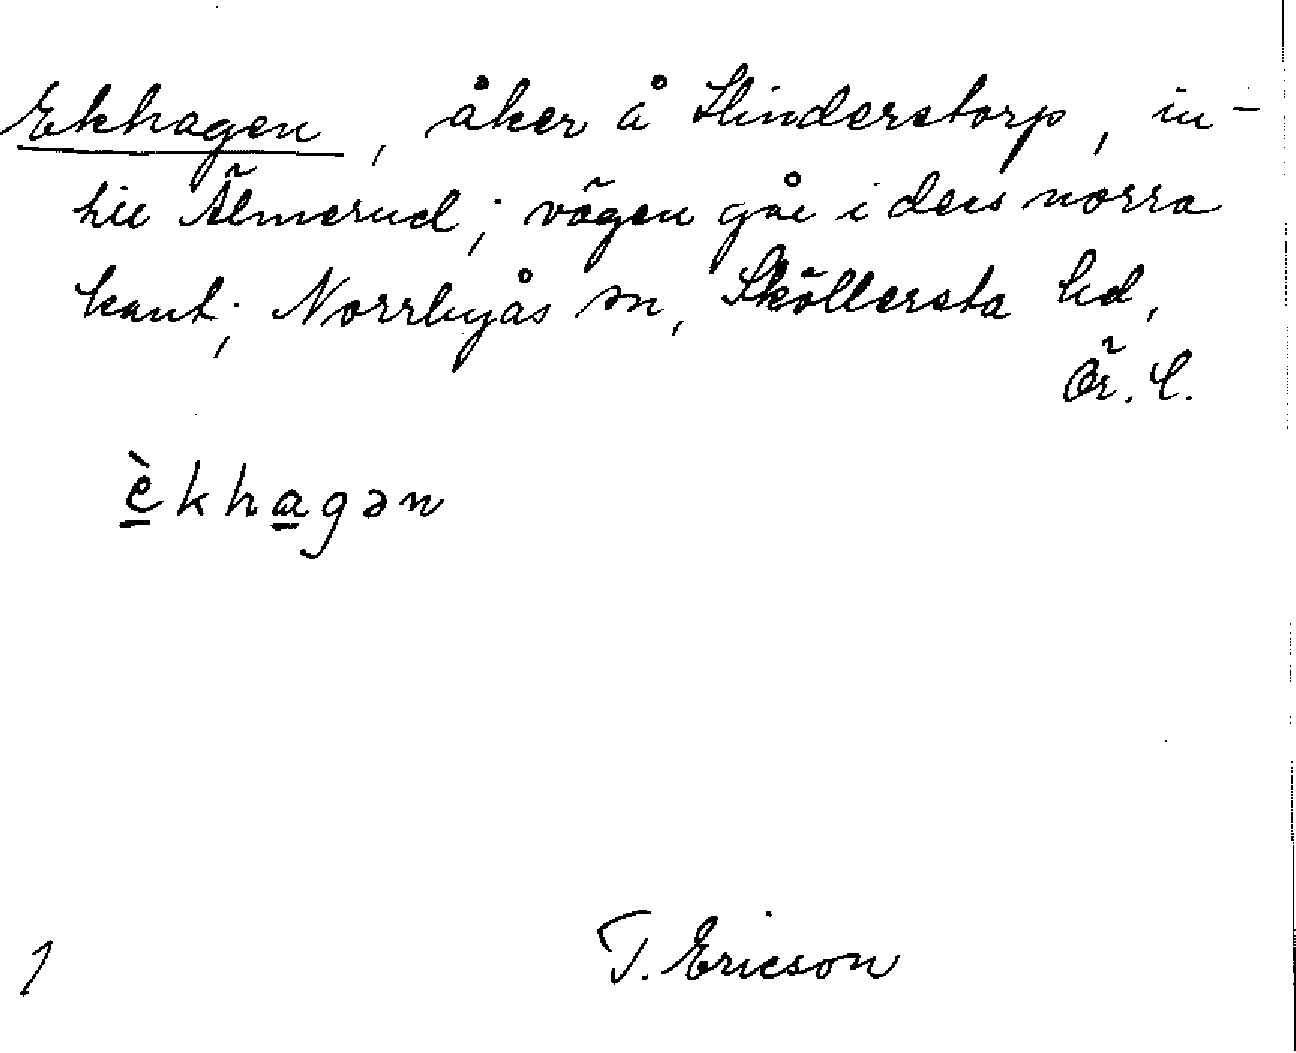 Ekhagen, åker å Slinderstorp, in-
till Älmerud; vägen går i dess norra
kant; Norrbyås sn, Sköllersta hd,
Ör. l.
èkhagən
T. Ericson
1